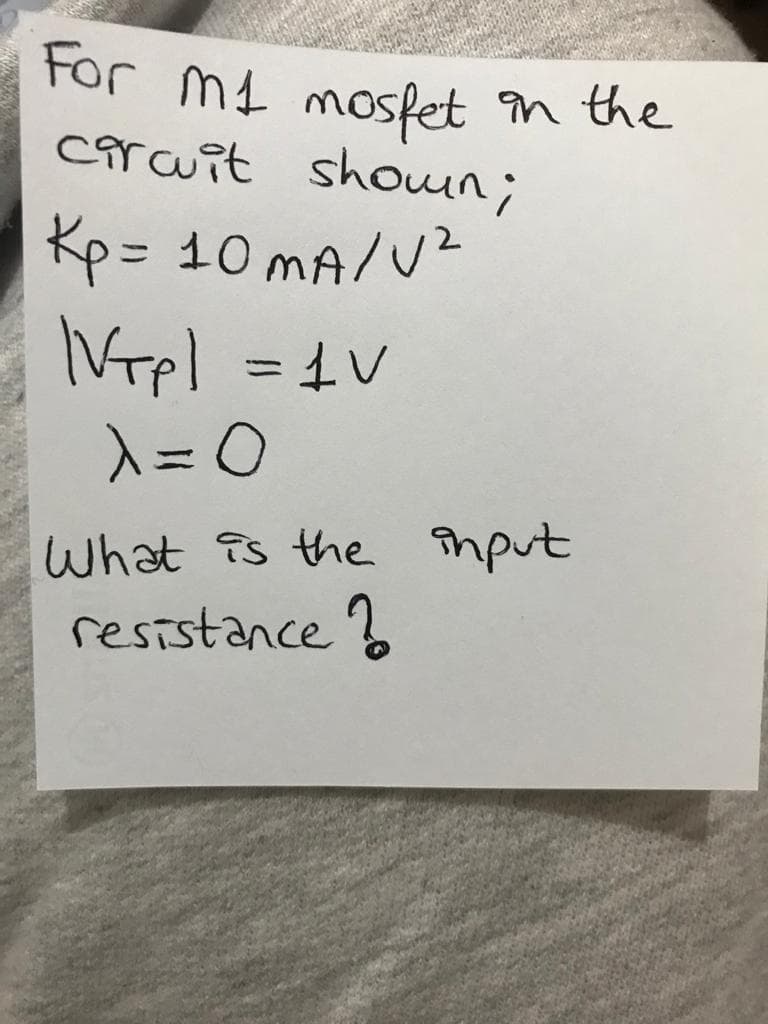 For M1 mosfet in the
circuit shown;
Kp = 10 mA/V²
|VTP| = 1V
λ = 0
What is the input
resistance?